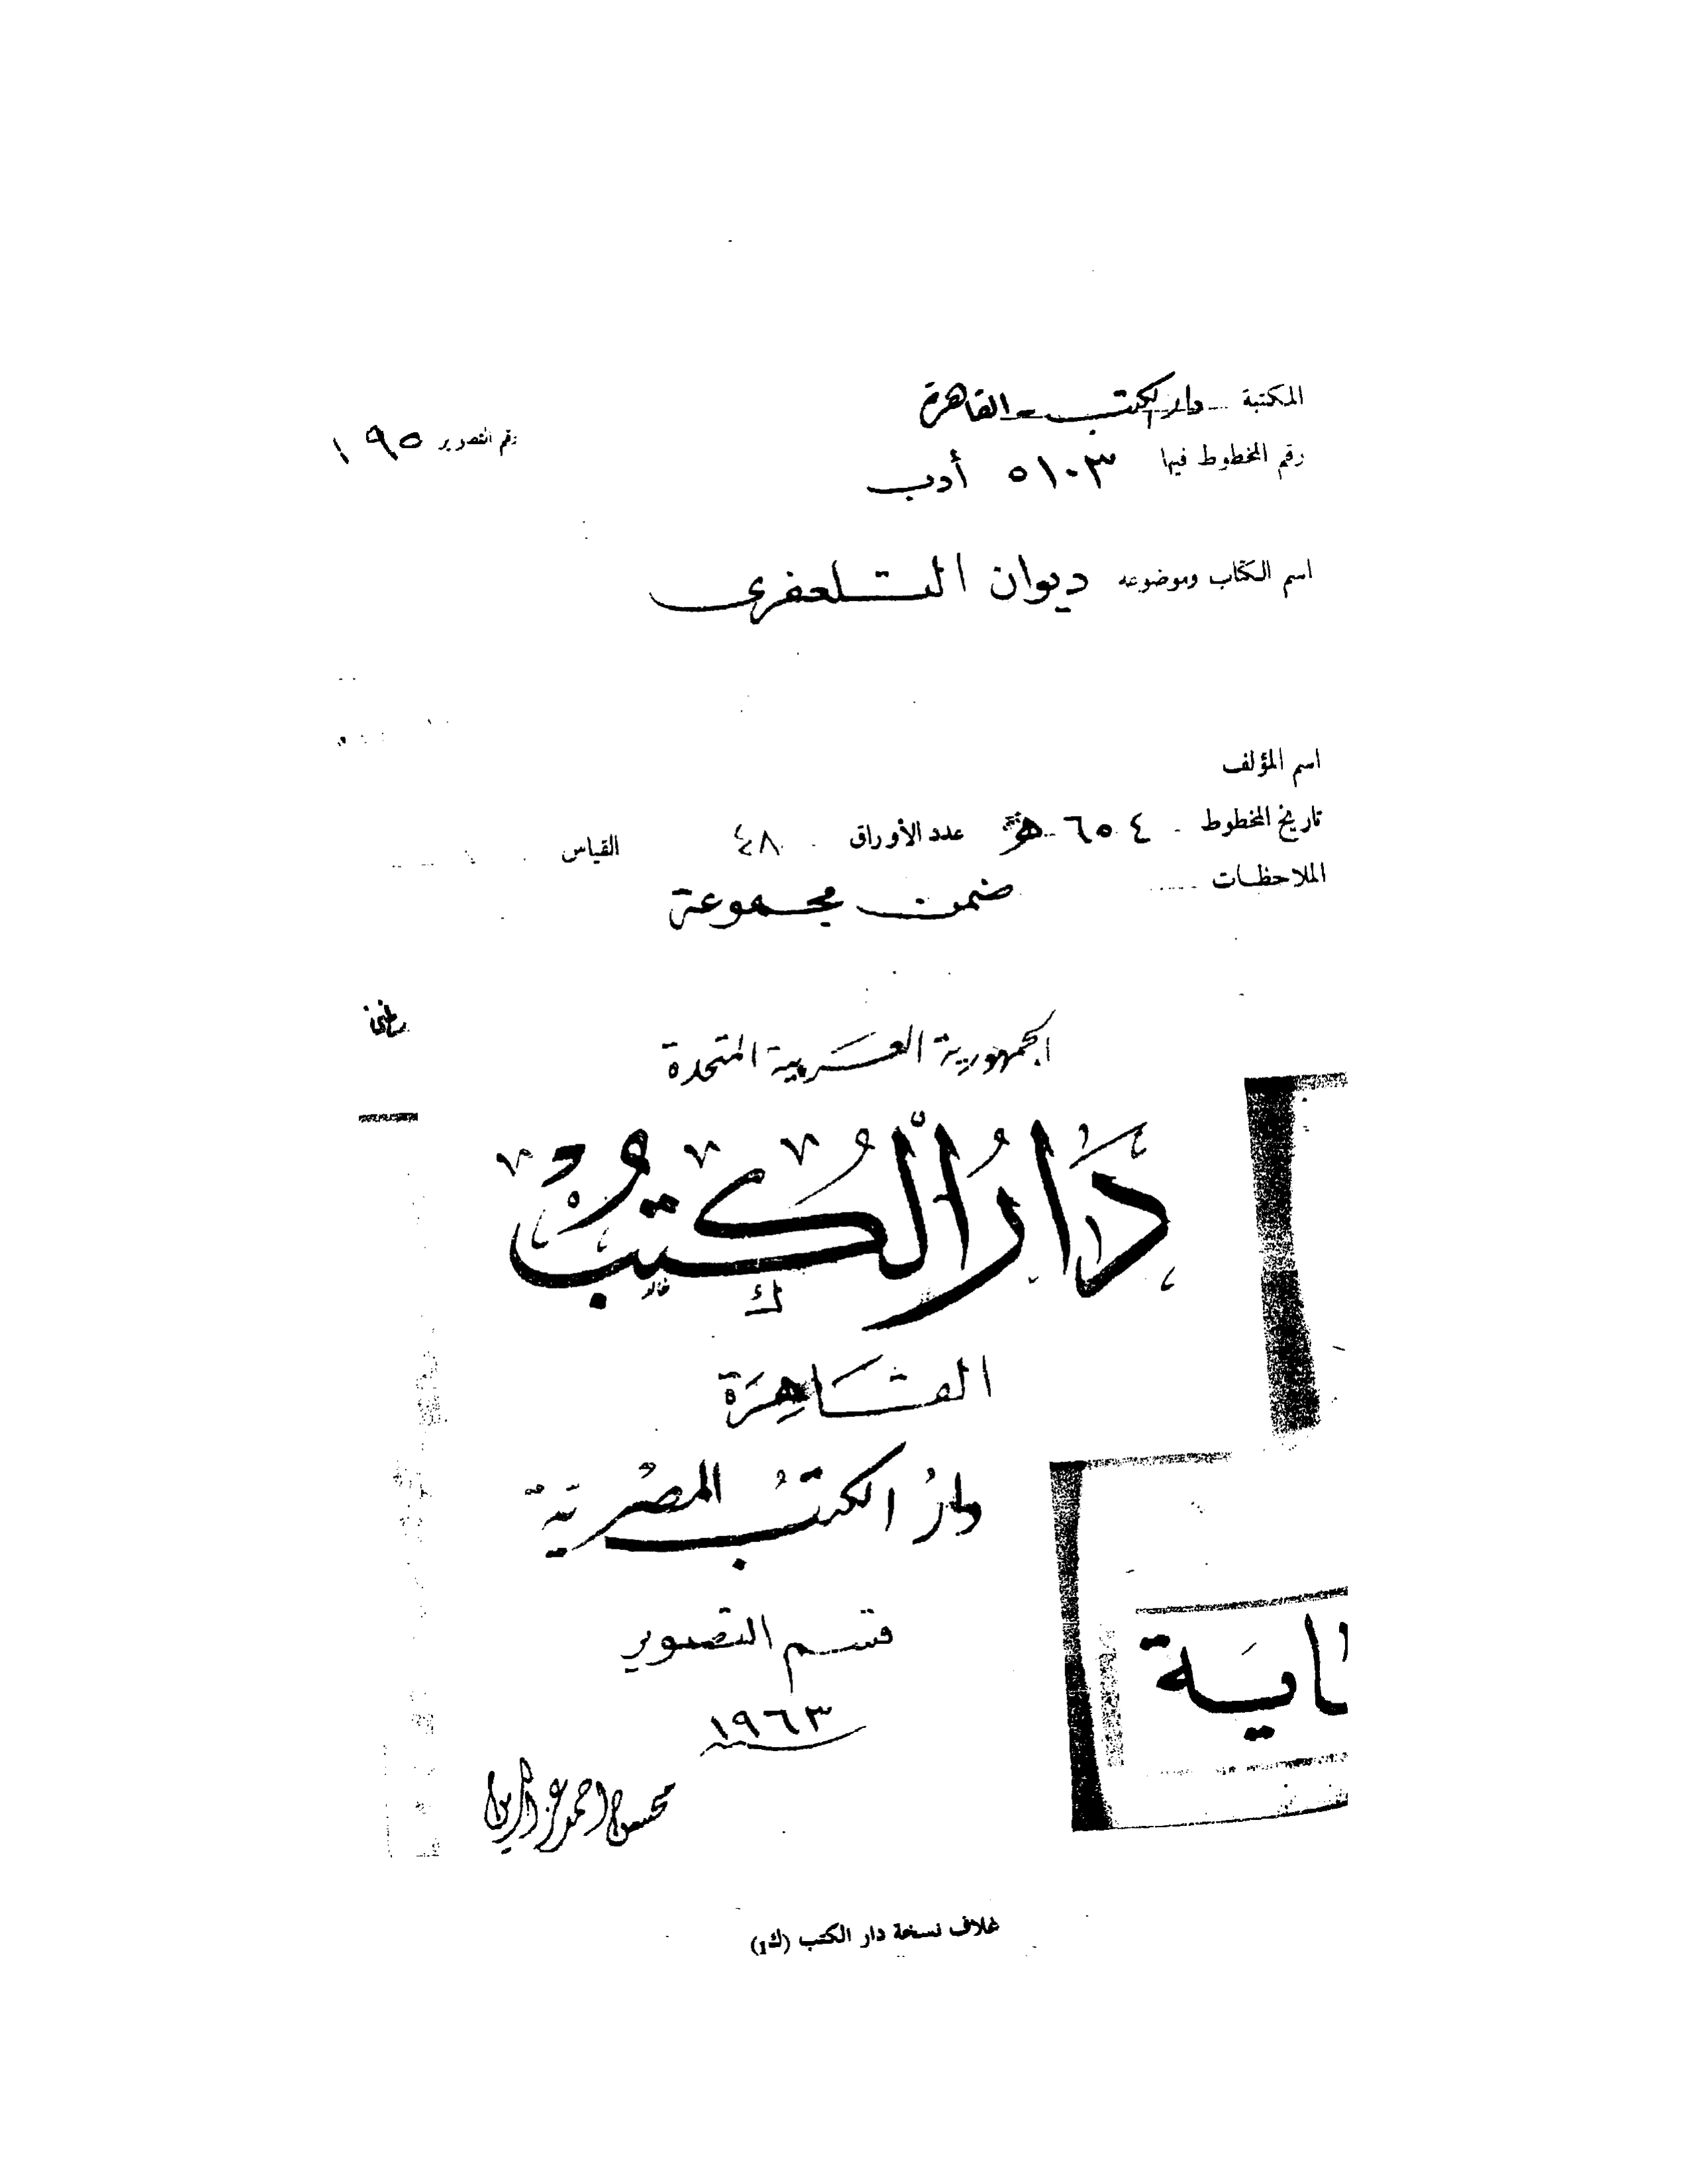 المكتبة دار الكتب - القاهرة
رقم المخطوط فيها ٥١٠٣ أدب
رقم التصوير ١٩٥
اسم الكتاب وموضوعه ديوان التلعفرى
اسم المؤلف
تاريخ المخطوط ٦٥٤ هـ عدد الأوراق ٤٨ القياس
الملاحظات
ضمن مجموعة
الجمهورية العربية المتحدة
دَارُ الْكُتُبْ
القَاهِرَة
دارُ الكتبُ المصْريّة
قسم التصوير
١٩٦٣
محسن احمد عز الدين
ـايَة
غلاف نسخة دار الكتب (ك1)